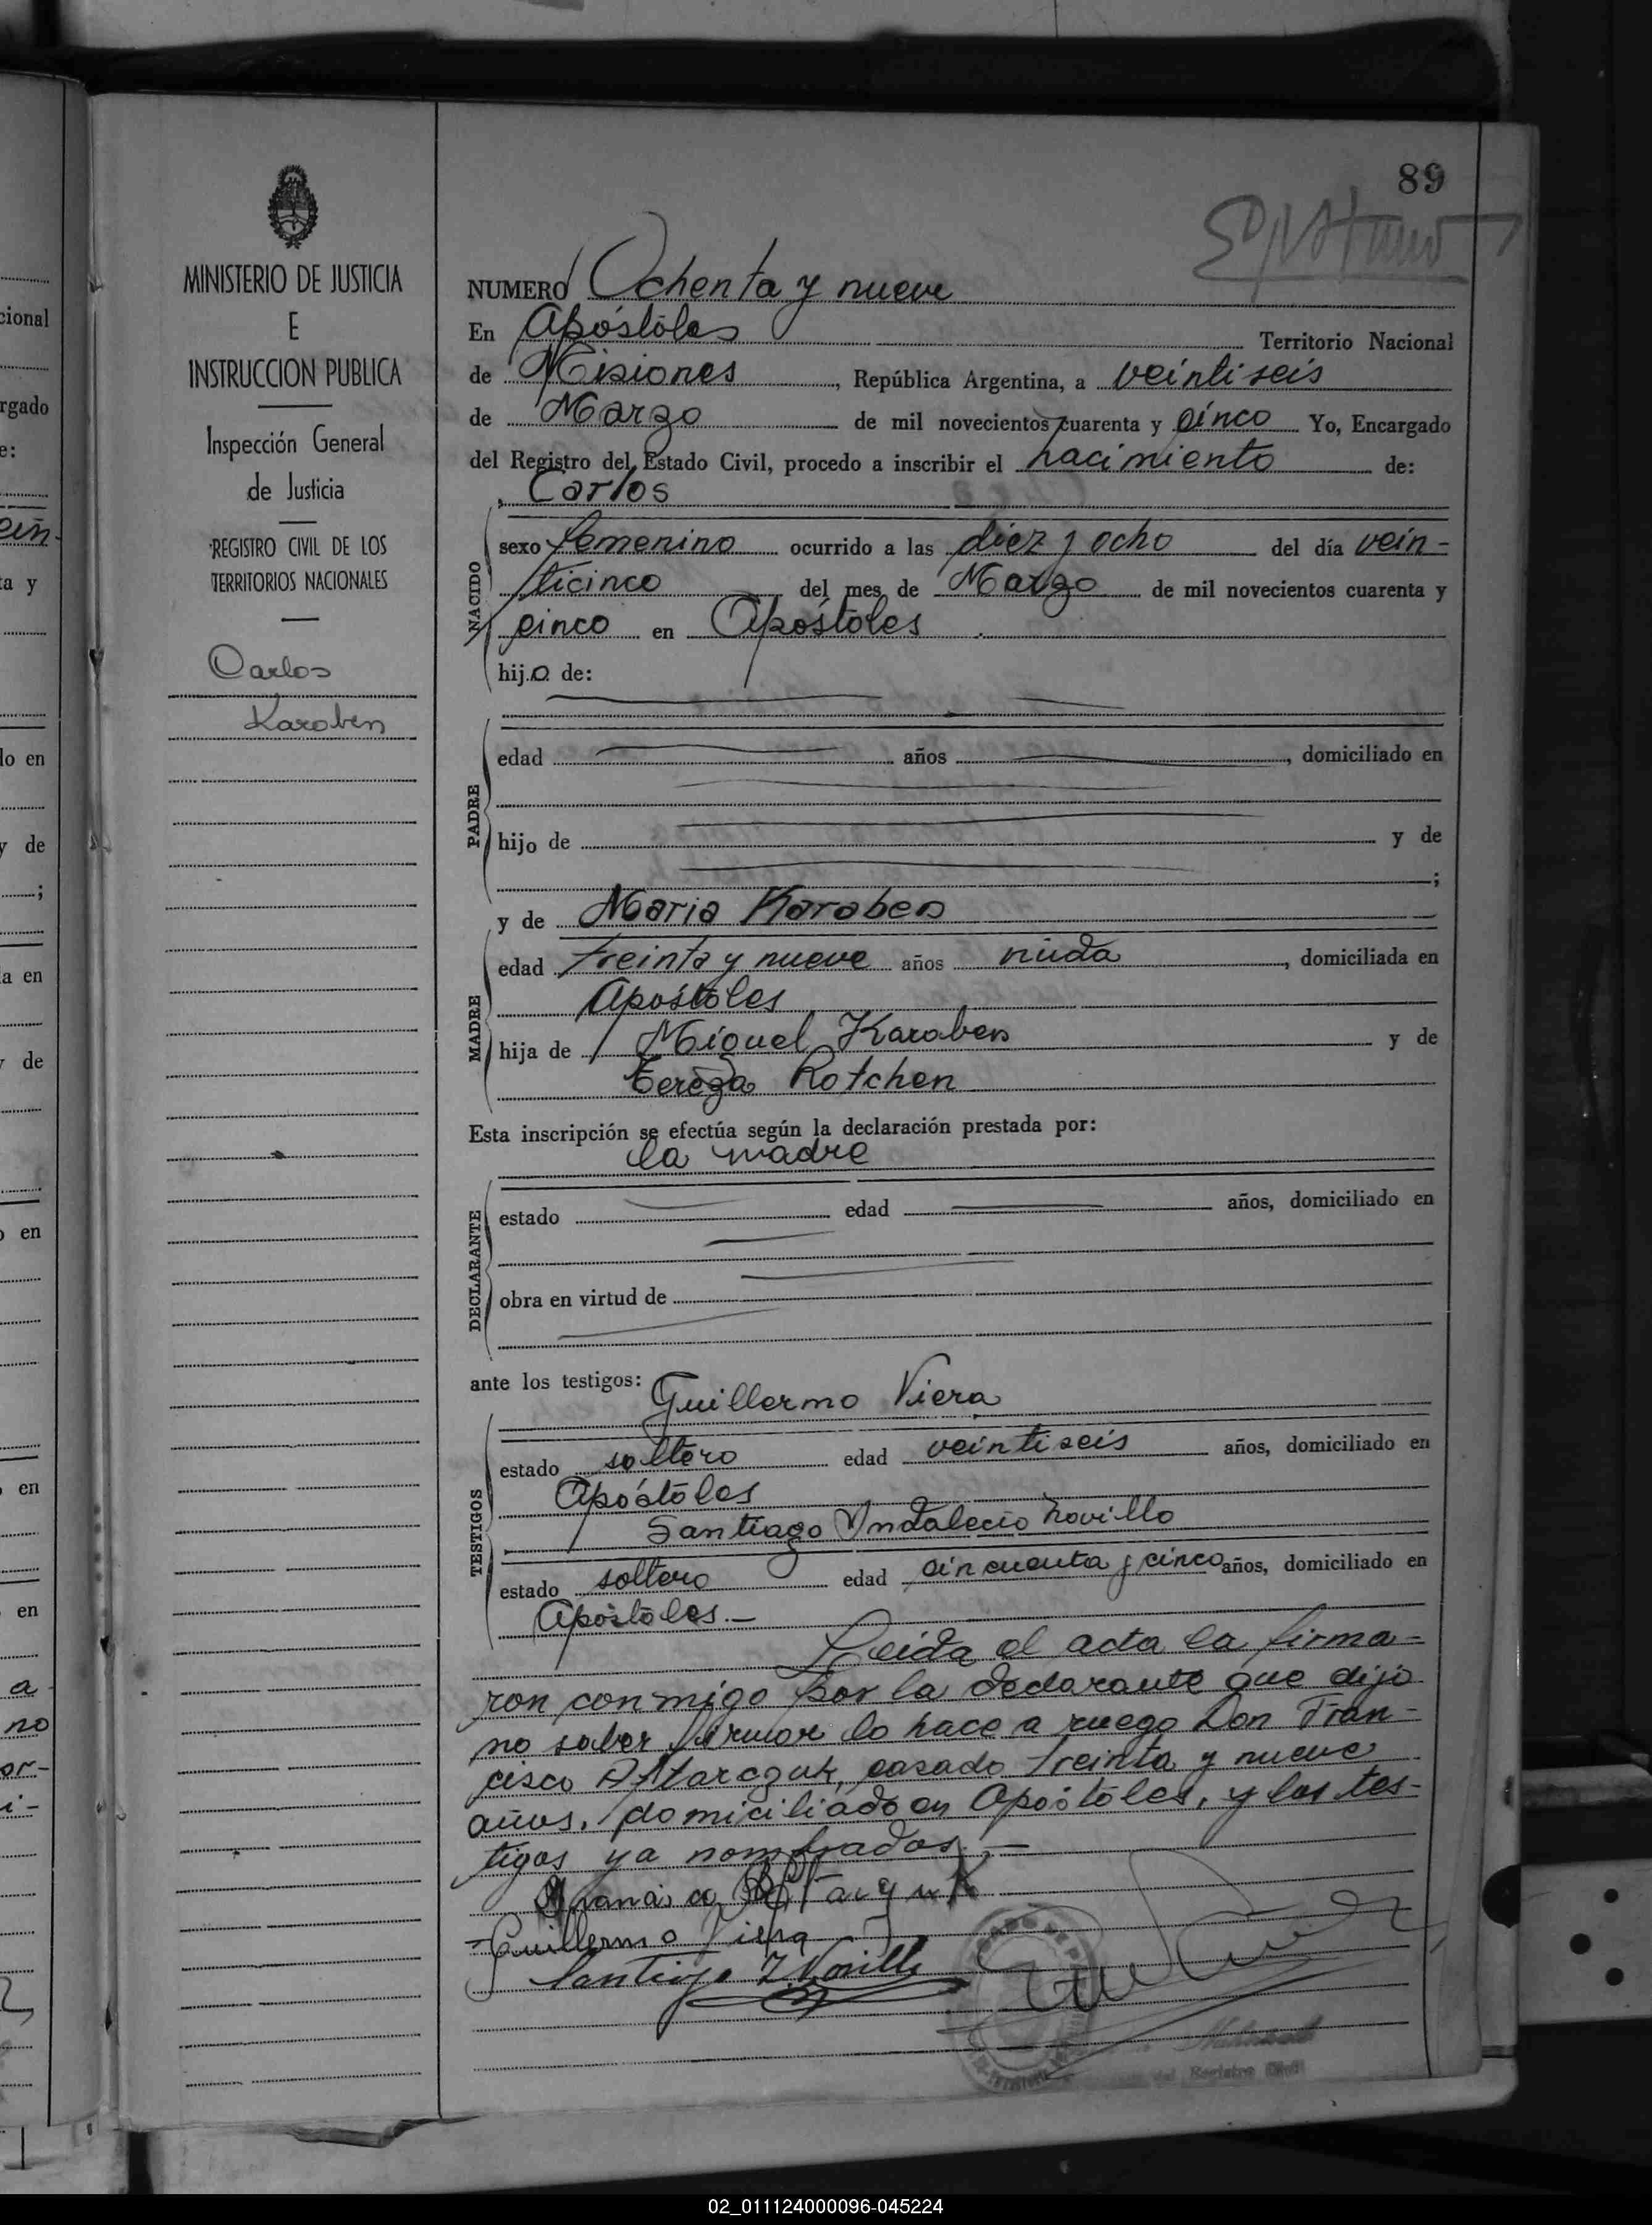 89
MINISTERIO DE JUSTICIA
E
INSTRUCCION PUBLICA
Inspección General
de Justicia
REGISTRO CIVIL DE LOS
TERRITORIOS NACIONALES
Carlos
Karaben
NUMERO Ochenta y nueve
En Apóstoles Territorio Nacional
de Misiones, República Argentina, a veintiseis
de Marzo de mil novecientos cuarenta y cinco Yo, Encargado
del Registro del Estado Civil, procedo a inscribir el nacimiento de:
Carlos
NACIDO
sexo femenino ocurrido a las diez y ocho del día vein-
ticinco del mes de Marzo de mil novecientos cuarenta y
cinco en Apóstoles
hijo de:
PADRE
edad años , domiciliado en
hijo de y de
;
y de Maria Karaben
MADRE
edad treinta y nueve años viuda, domiciliada en
Apóstoles
hija de Miguel Karaben y de
Tereza Rotchen
Esta inscripción se efectúa según la declaración prestada por:
la madre
DECLARANTE
estado edad años, domiciliado en
obra en virtud de
ante los testigos: Guillermo Viera
TESTIGOS
estado soltero edad veintiseis años, domiciliado en
Apóstoles
Santiago Yndalecio Novillo
estado soltero edad cincuenta y cinco años, domiciliado en
Apóstoles.-
Leida el acta la firma-
ron conmigo por la declarante que dijo
no saber firmar lo hace a ruego Don Fran-
cisco casado treinta y nueve
años, domiciliado en Apóstoles, y los tes-
tigos ya nombrados.-
Guillermo Viera
Santiago Y. Novillo
del Registro Civil
02_011124000096-045224